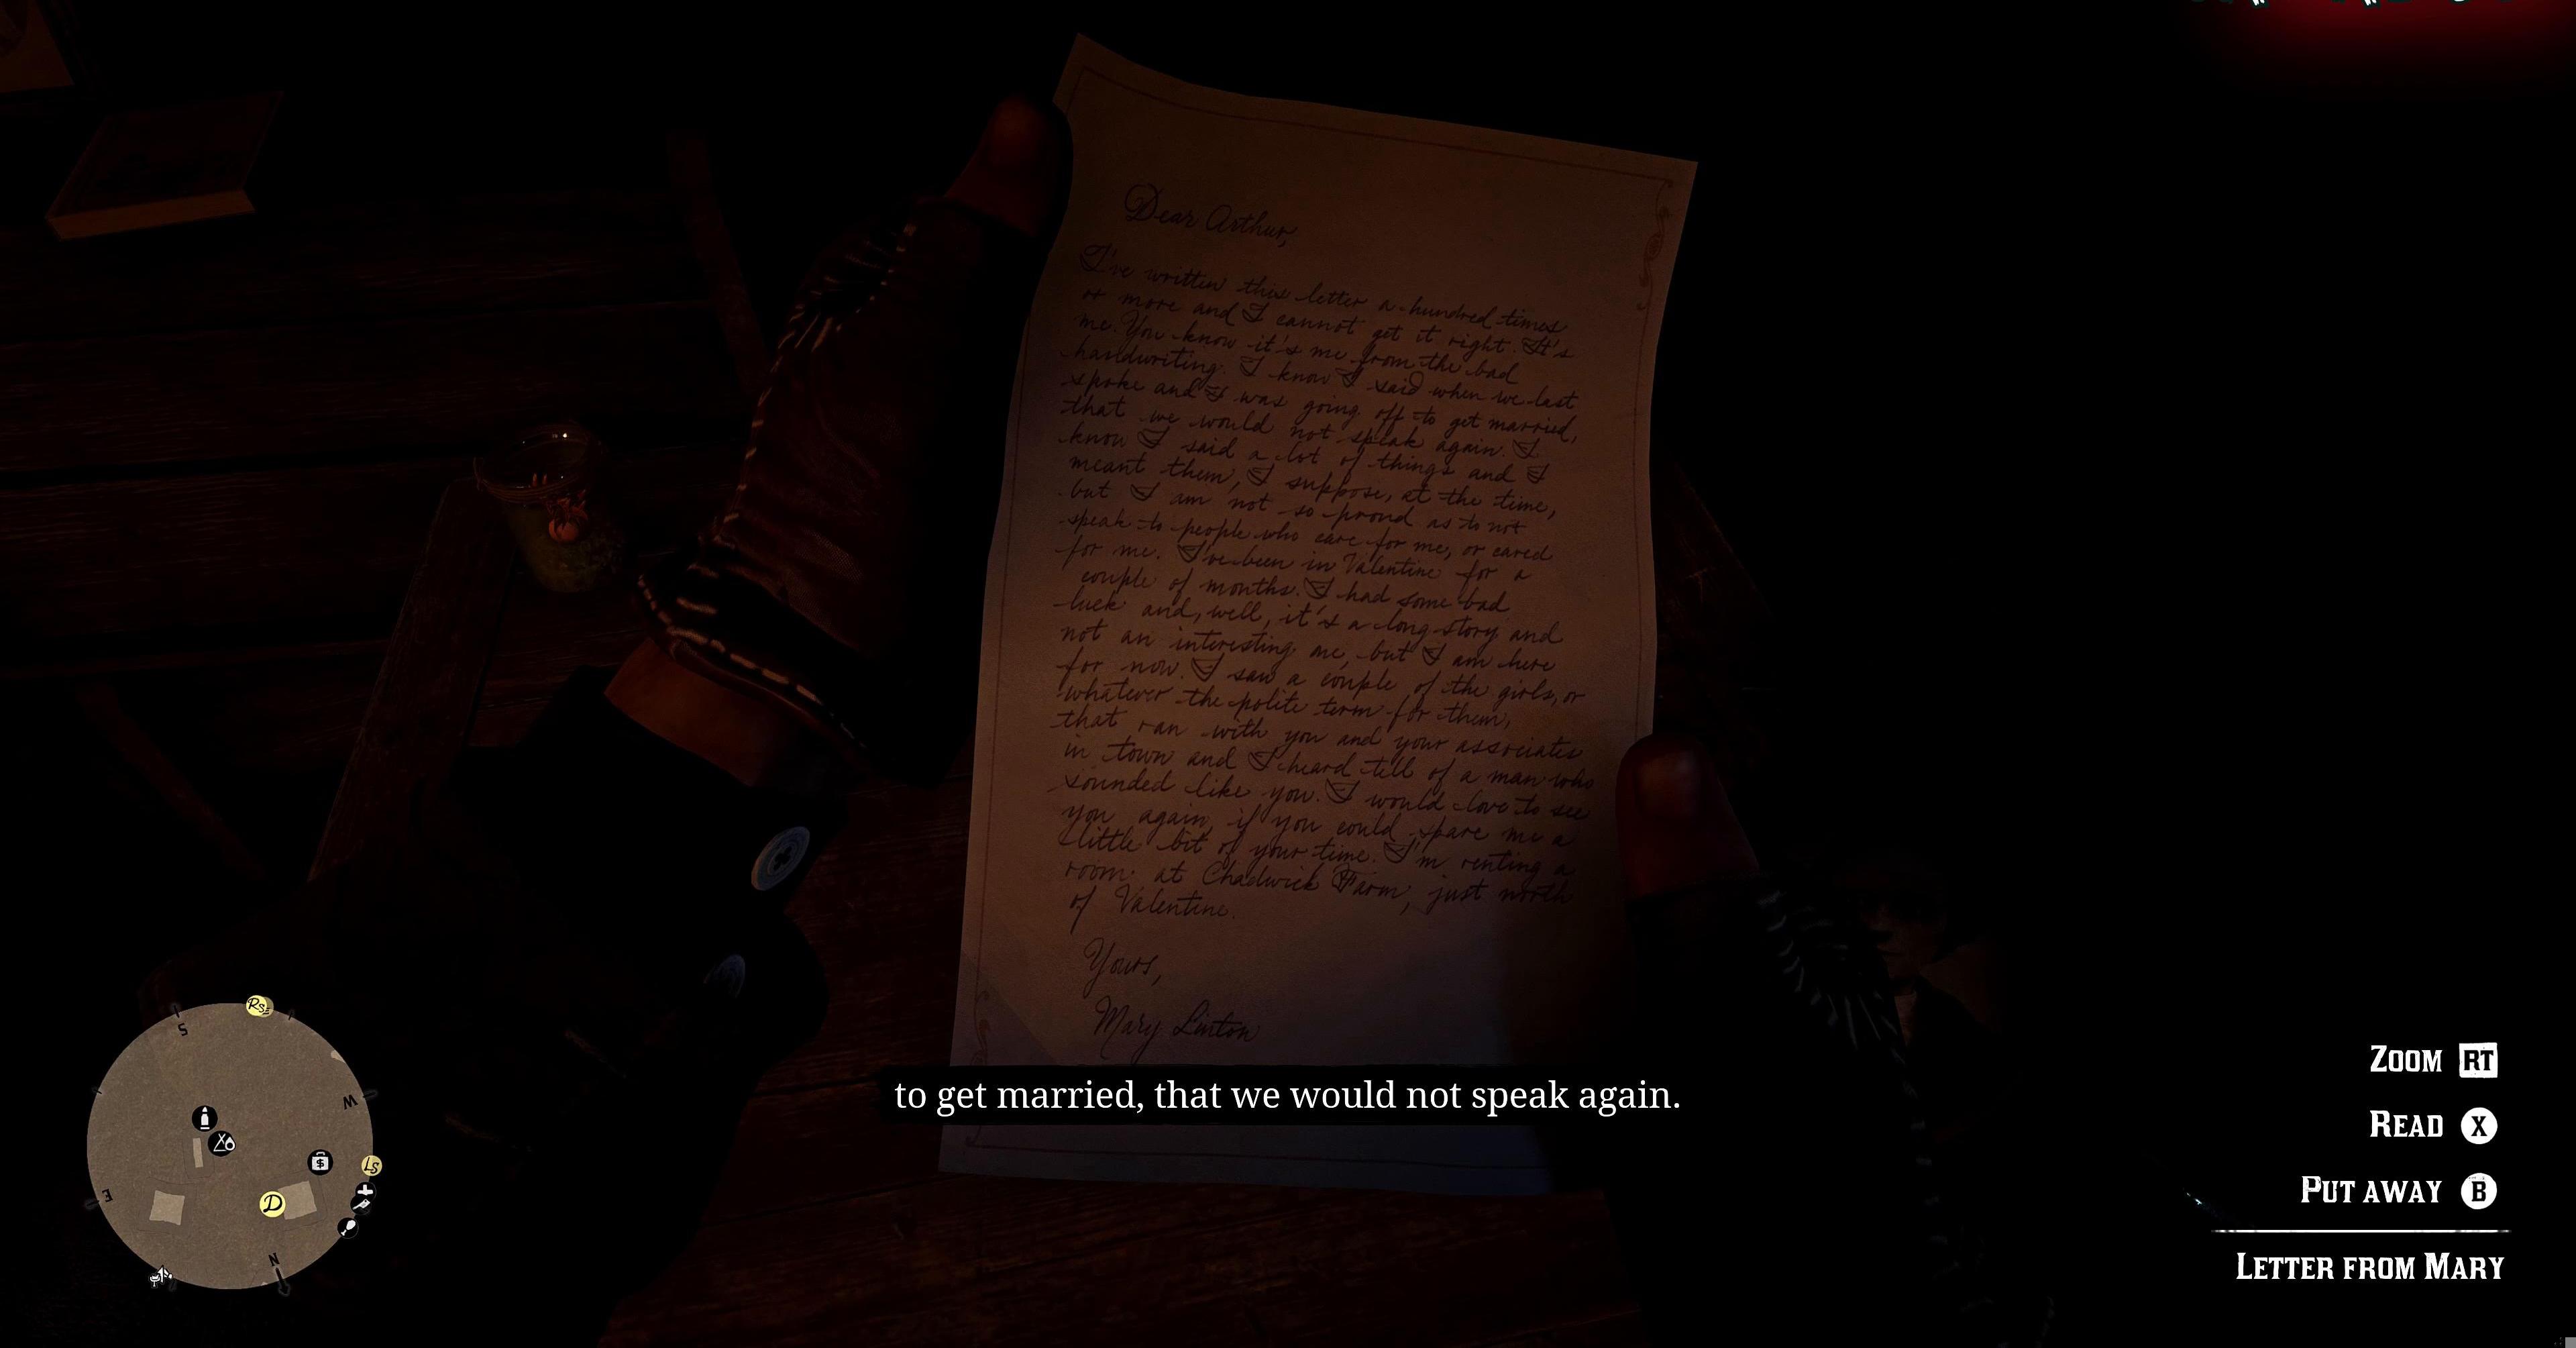 Dear Arthur,
I've written this letter a hundred times
or more and I cannot get it right. It's
me. You know it's me from the bad
handwriting. I know I said when we last
spoke and I was going off to get married,
that we would not speak again. I
know I said a lot of things and I
meant them, I suppose, at the time,
but I am not so proud as to not
speak to people who care for me, or cared
for me. I've been in Valentine for a
couple of months. I had some bad
luck and, well, it's a long story and
not an interesting one, but I am here
for now. I saw a couple of the girls, or
whatever the polite term for them,
that ran with you and your associates
in town and I heard tell of a man who
sounded like you. I would love to see
you again, if you could spare me a
little bit of your time. I'm renting a
room at Chadwick Farm, just north
of Valentine.
Yours,
Mary Linton
to get married, that we would not speak again.
RS
S
W
LS
E
$
D
N
ZOOM RT
READ X
PUT AWAY B
LETTER FROM MARY